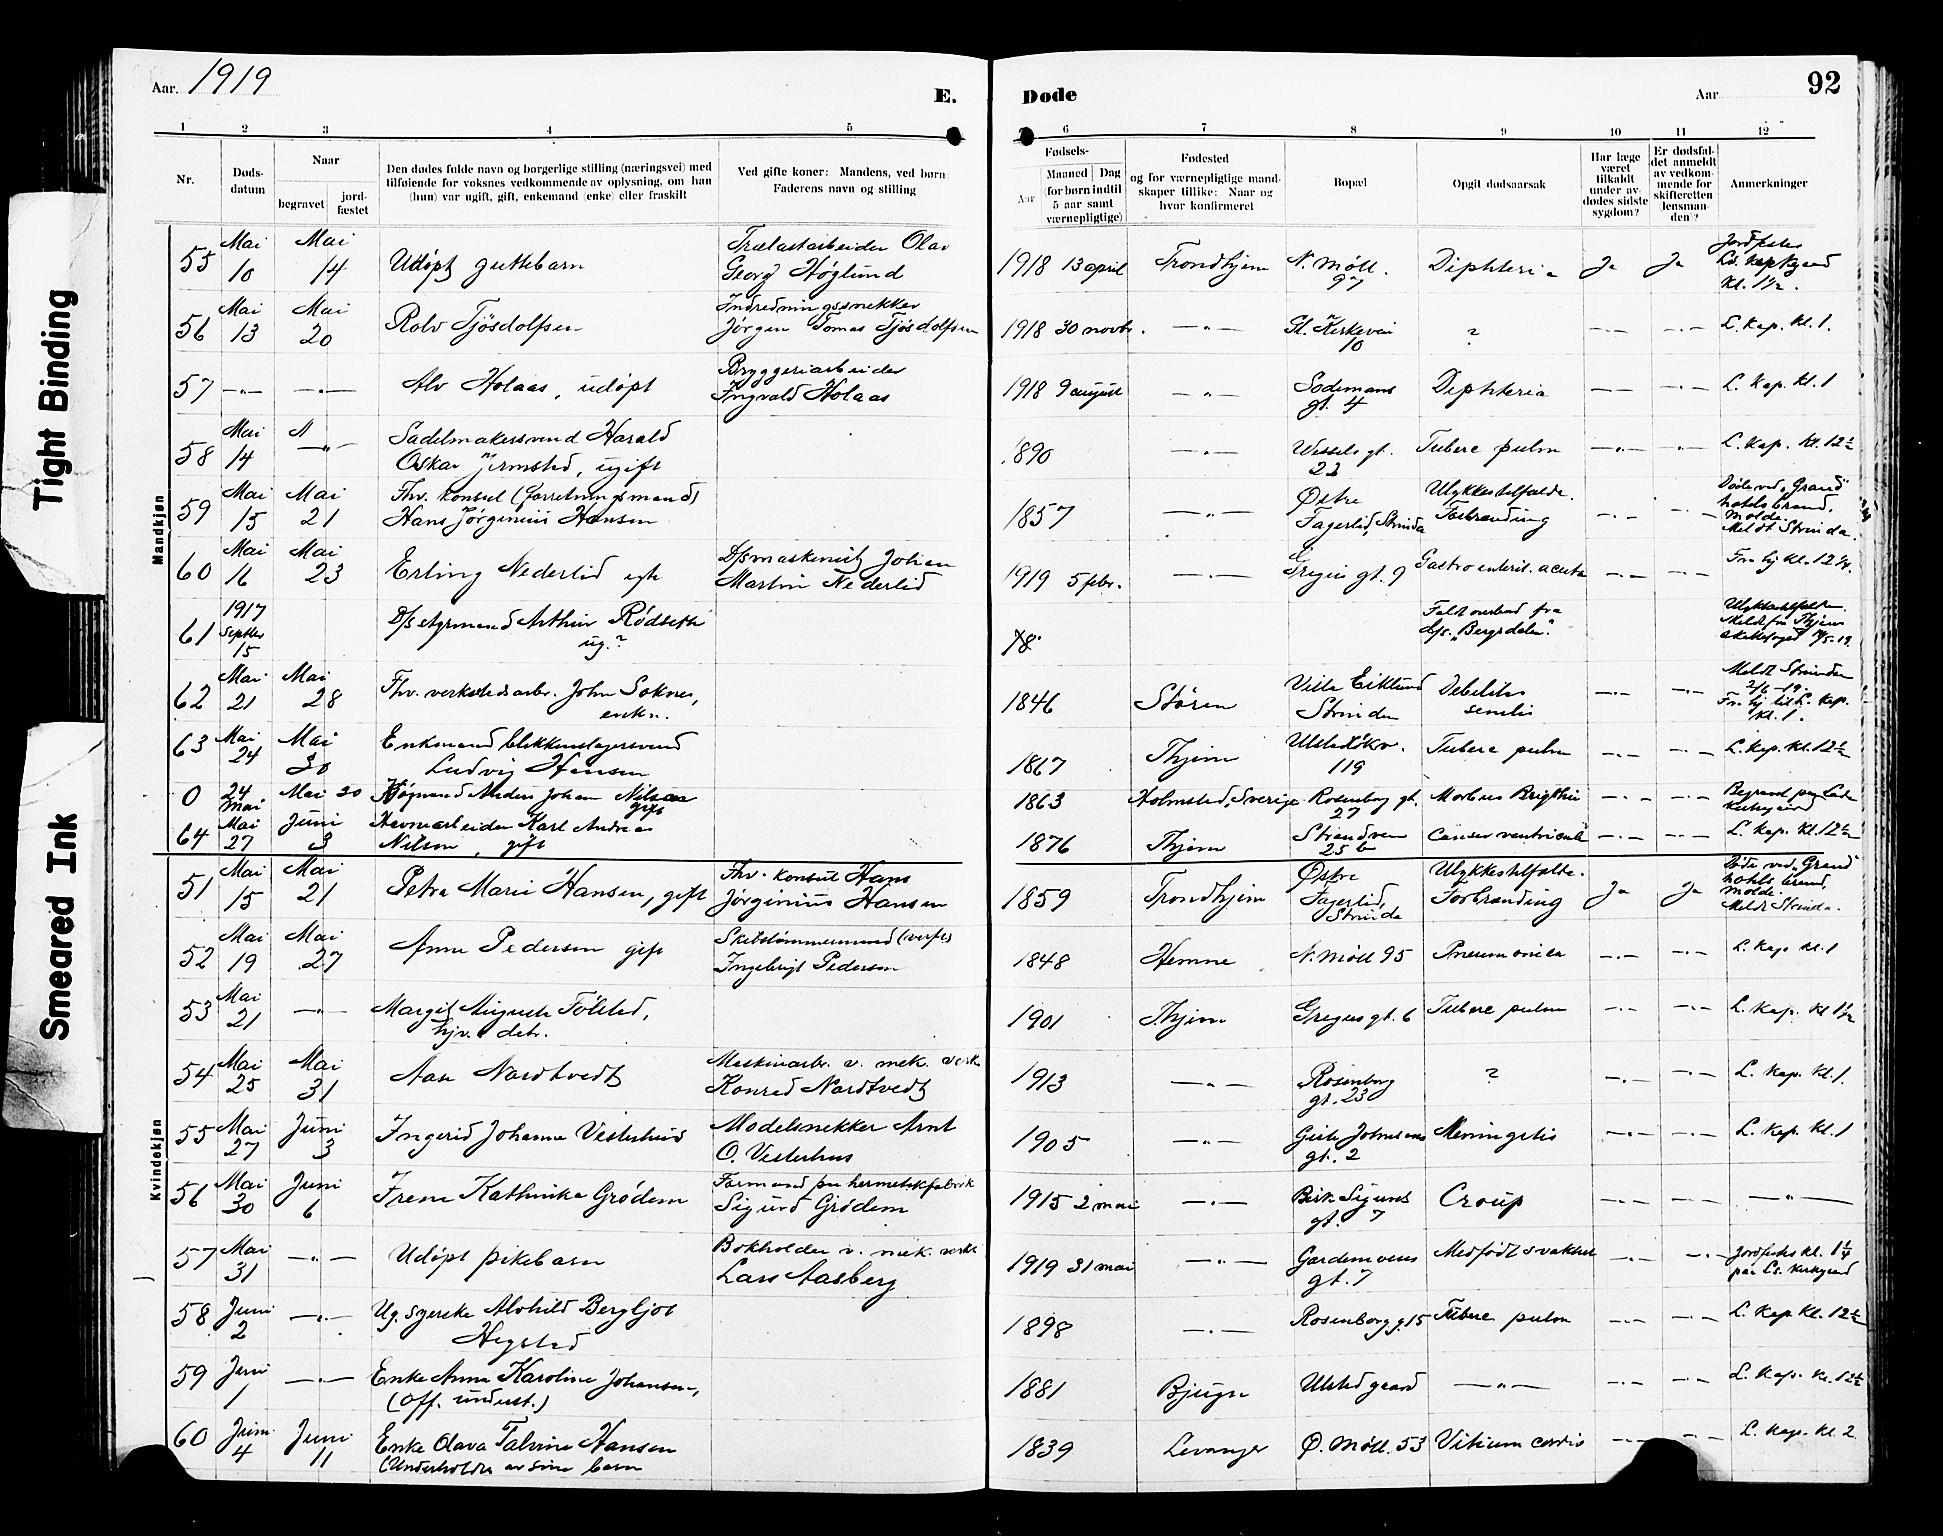 Tight Binding
Smeared Ink
Aar. 1919
E.
Døde
Aar
92
1 2 3 4 5 6 7 8 9 10 11 12
Nr.
Døds-
datum
Naar
begravet
jord-
fæstet
Den dødes fulde navn og borgerlige stilling (næringsvei) med
tilføiende for voksnes vedkommende av oplysning, om han
(hun) var ugift, gift, enkemand (enke) eller fraskilt
Ved gifte koner: Mandens, ved børn:
Faderens navn og stilling
Fødsels-
Aar
Maaned Dag
(for børn indtil
5 aar samt
værnepligtige)
Fødested
og for værnepligtige mand-
skaper tillike: Naar og
hvor konfirmeret
Bopæl
Opgit dødsaarsak
Har læge
været
tilkaldt
under av-
dødes sidste
sygdom?
Er dødsfal-
det anmeldt
av vedkom-
mende for
skifteretten
(lensman-
den)?
Anmerkninger
Mandkjøn
55 Mai 10 Mai 14 Udøpt guttebarn
Trælastarbeider Olav
Georg Høglund
1918 13 april Trondhjem N. Møll. 97 Diphteria Ja Ja
Jordfestes
Ld. kapkgaard
Kl. 1½.
56 Mai 13 Mai 20 Rolv Tjøsdolfsen
Indredningssnekker
Jørgen Tomas Tjøsdolfsen
1918 30 novbr. —„— Gl. Kirkevei 10 ? —„— —„— L. Kap. Kl. 1.
57 —„— —„— Alv Holaas, udøpt
Bryggeriarbeider
Ingvald Holaas
1918 9 august —„— Sodemans gt. 4 Diphteria —„— —„— L. Kap. Kl. 1
58 Mai 14 —„—
Sadelmakersvend Harald
Oskar Jermsted, ugift
1890 Wessels gt. 22 Tuberc pulm —„— —„— L. Kap. Kl. 12½
59 Mai 15 Mai 21
Fhv. konsul (forretningsmand)
Hans Jørginius Hansen
1857 —„— Østre Fagerlid, Strinda
Ulykkestilfælde.
Forbrænding
—„— —„—
Døde ved „Grand"
hotels brand,
Molde.
Meldt Strinda.
60 Mai 16 Mai 23 Erling Nederlid egte
D/smaskinist Johan
Martin Nederlid
1919 5 febr. —„— Gregus gt. 9 Gastroenterit. acuta —„— —„— Fra hj Kl. 12¼.
61 1917 Septbr 15
D/sstyrmand Arthur Rødseth
ug.?
18
Falt overbord fra
d/s. „Bergsdalen".
Ulykkestilfælde.
Meldt fra Thjem
62 Mai 21 Mai 28
Fhv. verkstedsarb. John Soknes,
enkem.
1846 Støren
Vestre Eiklund
Strinden
Debilitas
senilis
—„— —„—
Meldt Strinden
2/6-19.
Fra hj til L. Kap.
Kl. 1.
63 Mai 24 Mai 30
Enkemand blikkenslagersvend
Ludvig Hansen
1867 Thjem Ulstadløkv. 119 Tuberc pulm —„— —„— L. Kap. Kl. 12½
0 24 mai Mai 30 Anders Johan Nilsson
gift
1863 Holmsted, Sverige Rosenborg gt. 27 Morbus Brigthii —„— —„—
Begravd paa Lade
kirkegaard
64 Mai 27 Juni 3
Havnearbeider Karl Andreas
Nilson, gift
1876 Thjem Strandven 25 b Cancer ventriculi —„— —„— L. Kap. Kl. 12½
Kvindekjøn
51 Mai 15 Mai 21 Petra Marie Hansen, gift
Fhv. konsul Hans
Jørginius Hansen
1859 Trondhjem
Østre
Fagerlid,
Strinda
Ulykkestilfælde.
Forbrænding
Ja Ja
Døde ved „Grand"
hotels brand,
Molde.
Meldt Strinda.
52 Mai 19 Mai 27 Anne Pedersen gift
Skibstømmermand (verft)
Ingebrigt Pedersen
1848 Hemne N. Møll 95 Pneumonia —„— —„— L. Kap Kl. 1
53 Mai 21 —„—
Margit Auguste Følsted,
hjv. datr.
1901 Thjem Gregus gt. 6 Tuberc pulm —„— —„— L. Kap. Kl 1½
54 Mai 25 Mai 31 Aase Nardtvedt
Maskinarb. v. mek. verk
Konrad Nardtvedt
1913 —„— Rosenborg gt. 23 ? —„— —„— L. Kap. Kl. 1.
55 Mai 27 Juni 3 Ingerid Johanne Vesterhus
Modelsnekker Arnt
O. Vesterhus
1905 —„— Geita Johnsens gt. 2 Meningitis —„— —„— L. Kap. Kl. 1
56 Mai 30 Juni 6 Irene Kathinka Grødem
Formand paa hermetikfabrik
Sigurd Grødem
1915 2 mai —„— Bisk. Sigurds gt. 7 Croup —„— —„— —„—
57 Mai 31 —„— Udøpt pikebarn
Bokholder v. mek. verkt
Lars Aasberg
1919 31 mai —„— Gardemoens gt. 7 Medfødt svakhet —„— —„—
Jordfestes kl. 1¼
paa Ld. kirkegaard
58 Juni 2 —„—
Ug. syerske Alvhild Bergljot
Hegstad
1898 —„— Rosenborg g. 15 Tuberc pulm —„— —„— L. Kap Kl. 12½
59 Juni 1 —„—
Enke Anna Karoline Johansen,
(Off. underst.)
1881 Bjugn Ulstadgaard —„— —„— —„— L. Kap. Kl. 12½
60 Juni 4 Juni 11
Enke Olava Talvine Hansen
(Underholdes av sine barn
1839 Levanger Ø. Møll. 53 Vitium cordis —„— L. Kap. Kl. 2